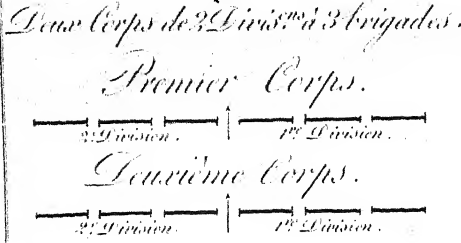 Deux Corps de 2 Divis.ns à 3 brigades.
Premier Corps.
2.e Division. 1re Division.
Deuxième Corps.
2.e Division. 1re Division.